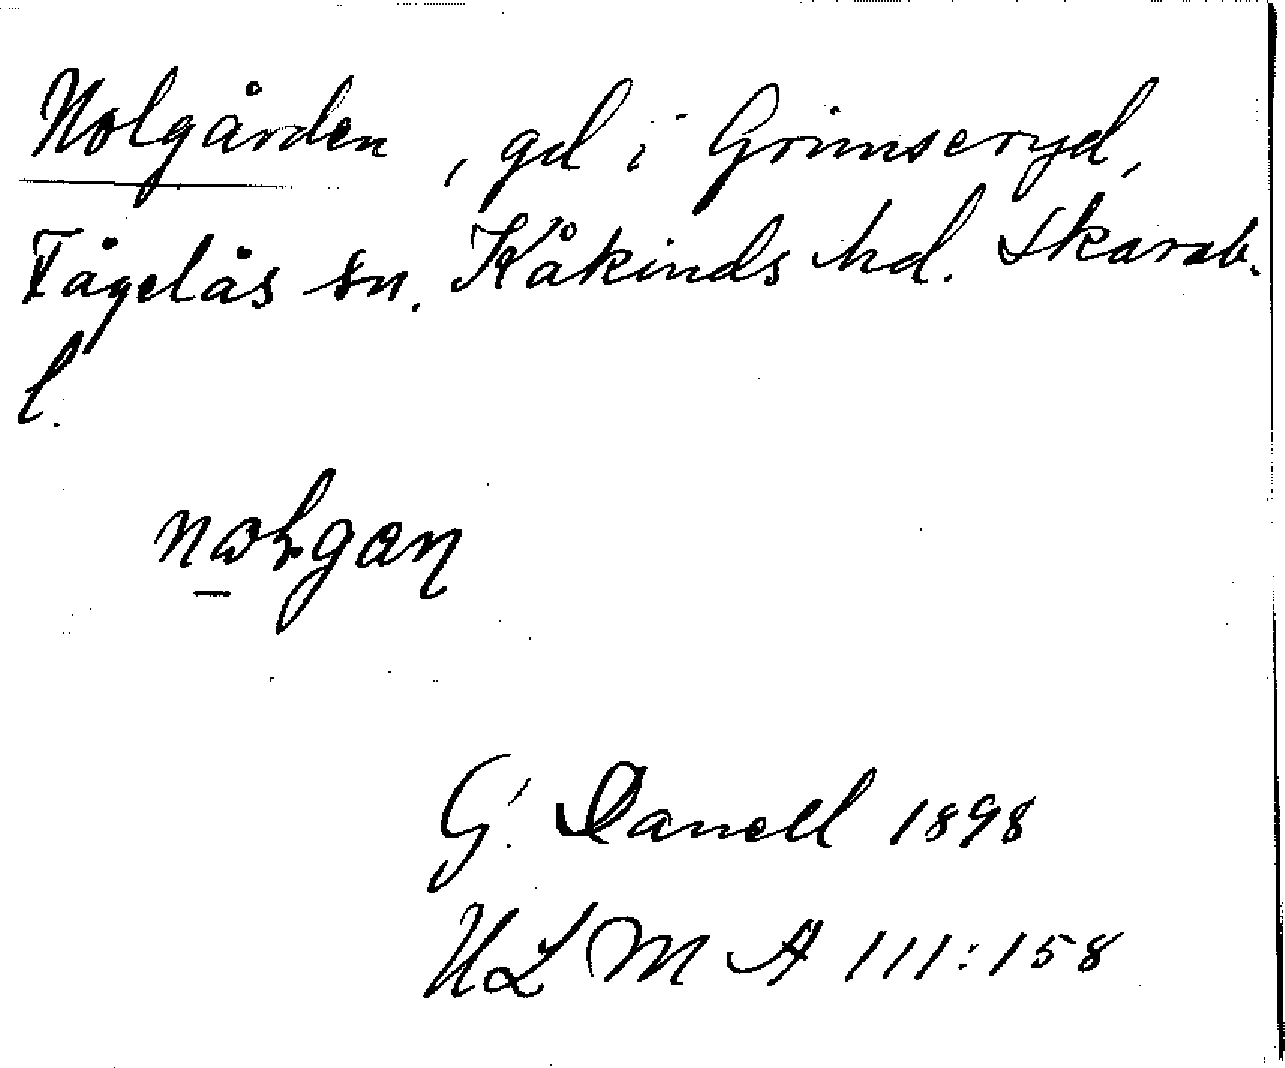 Nolgården, gd i Grimseryd,
Fågelås sn. Kåkinds hd. Skarab.
l.
G. Danell 1898
ULMA 111:158